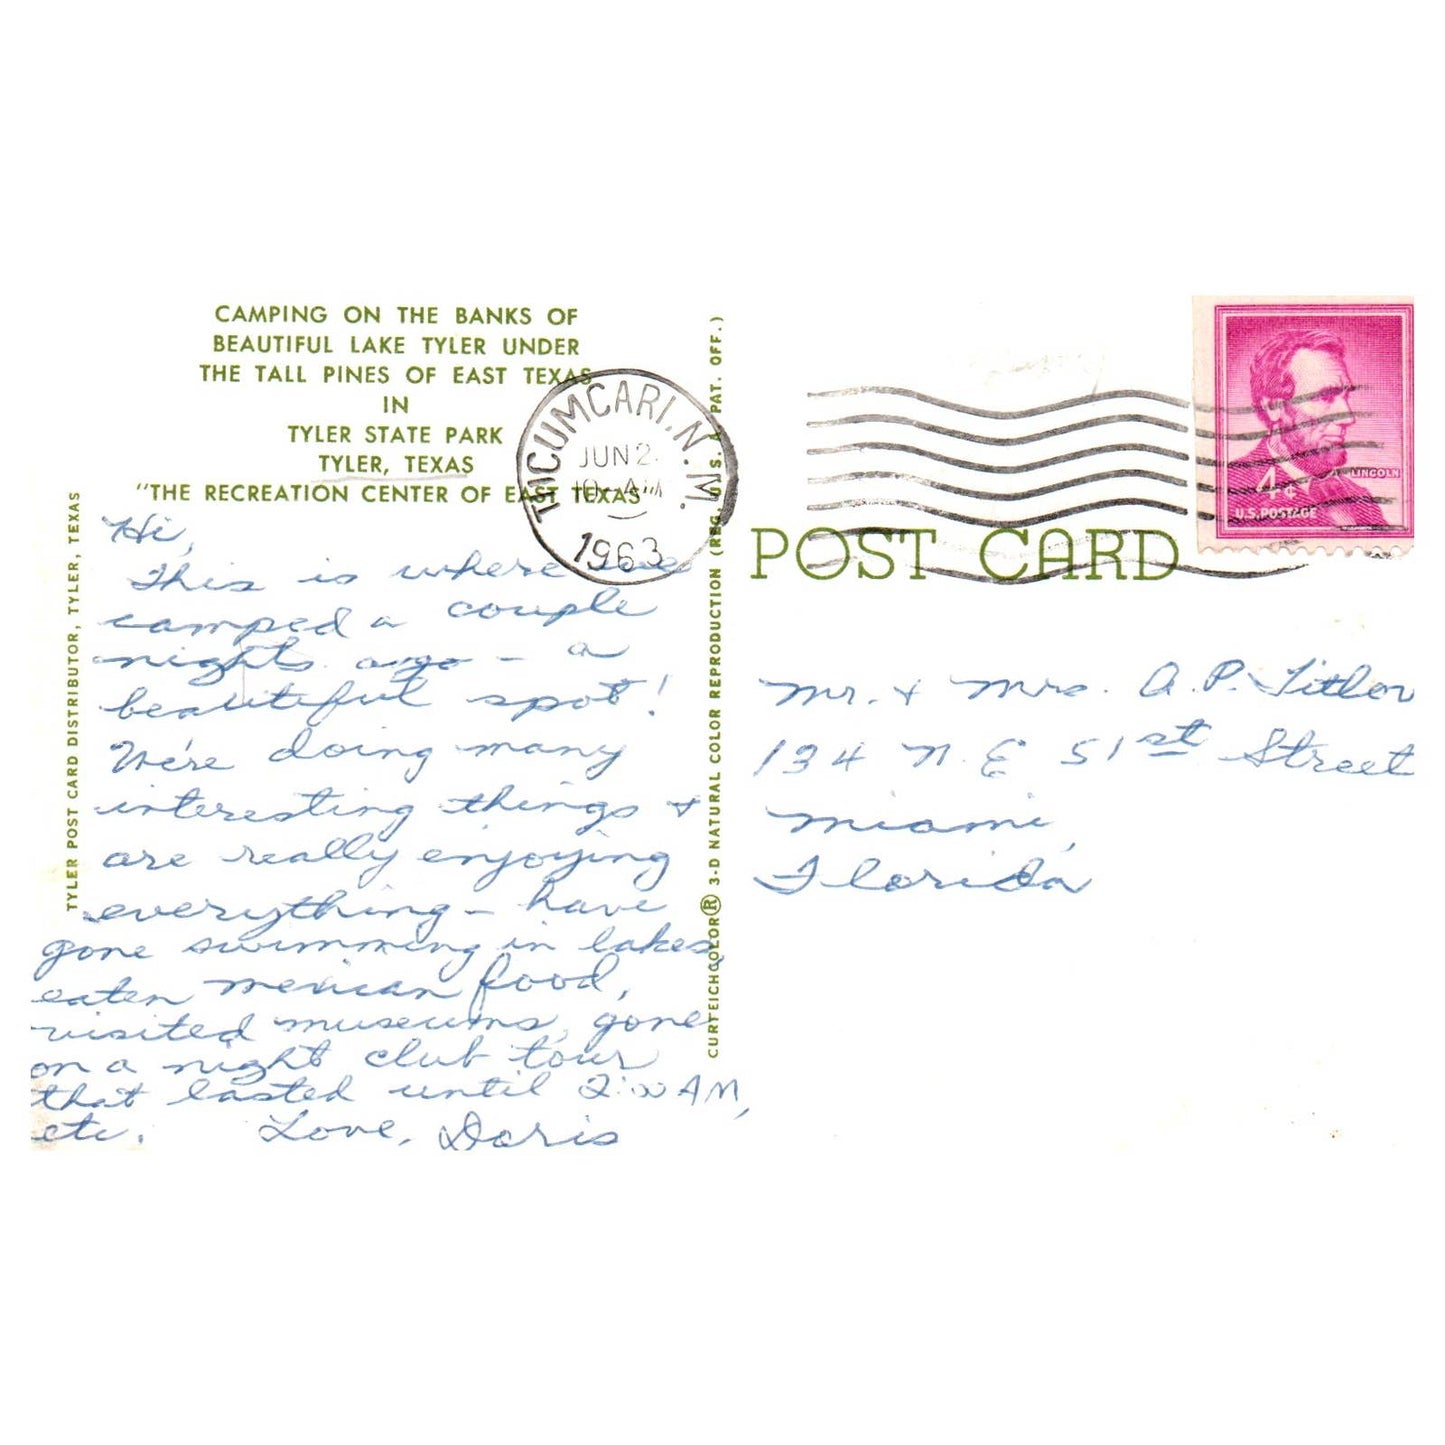 CAMPING ON THE BANKS OF
BEAUTIFUL LAKE TYLER UNDER
THE TALL PINES OF EAST TEXAS
IN
TYLER STATE PARK
TYLER, TEXAS
"THE RECREATION CENTER OF EAST TEXAS"
TYLER POST CARD DISTRIBUTOR, TYLER, TEXAS
Hi,
This is where we
camped a couple
nights ago - a
beautiful spot!
We're doing many
interesting things +
are really enjoying
everything - have
gone swimming in lakes,
eaten mexican food,
visited museums, gone
on a night club tour
that lasted until 2:00 AM,
etc. Love, Doris
CURTEICHCOLOR® 3-D NATURAL COLOR REPRODUCTION (REG. U.S.A. PAT. OFF.)
TUCUMCARI, N.M.
JUN 2
10 - AM
1963
LINCOLN
4¢
U.S. POSTAGE
POST CARD
Mr. + Mrs. A. P.
134 N. E 51st Street
Miami,
Florida